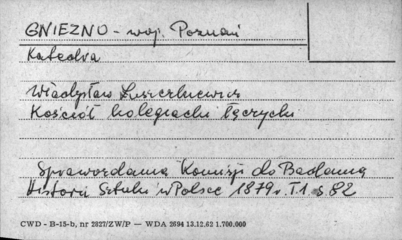 GNIEZNO - woj. Poznań
Katedra
Władysław Łuszczkiewicz
Kościół kolegiacki łęczycki
Sprawozdania Komisji do Badania
Historii Sztuki w Polsce 1879 r. T.1 s. 82
CWD - B-15-b, nr 2827/ZW/P — WDA 2694 13.12.62 1.700.000